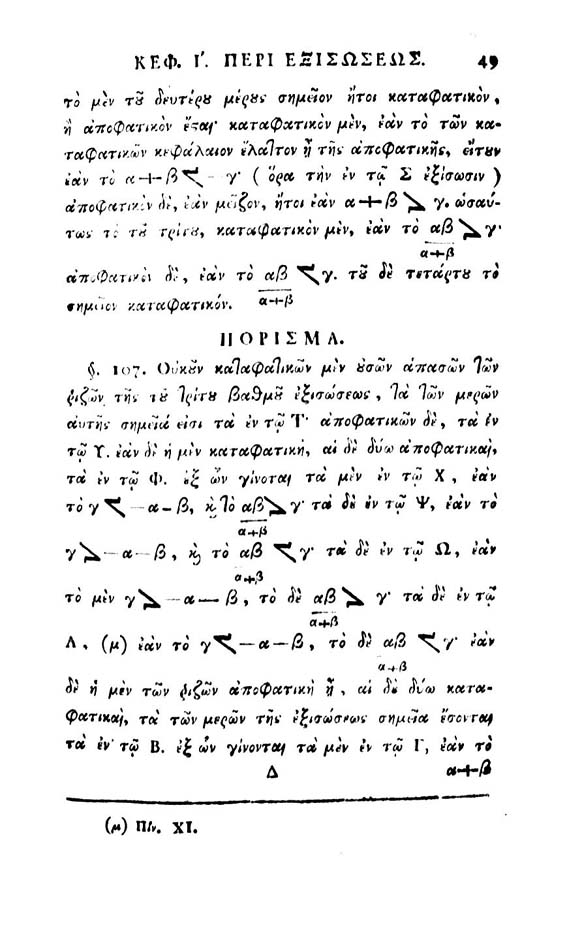 ΚΕΦ. Ι΄. ΠΕΡΙ ΕΞΙΣΩΣΕΩΣ. 49
τὸ μὲν τȣ͂ δευτέρȣ μέρȣς σημεῖον ἤτοι καταφατικὸν,
ἢ ἀποφατικὸν ἔςαι· καταφατικὸν μὲν, ἐὰν τὸ τῶν κα-
ταφατικῶν κεφάλαιον ἔλαττον ᾖ τῆς ἀποφατικῆς, εἴτȣν
ἐὰν τὸ α+β < - γ· ( ὅρα τὴν ἐν τῷ Σ ἐξίσωσιν )
ἀποφατικὸν δὲ, ἐὰν μεῖζον, ἤτοι ἐὰν α+β > γ. ὡσαύ-
τως τὸ τȣ͂ τρίτȣ, καταφατικὸν μὲν, ἐὰν τὸ αβ > γ·
α+β
ἀποφατικὸν δὲ, ἐὰν τὸ αβ < γ. τȣ͂ δὲ τετάρτȣ τὸ
σημεῖον καταφατικόν. α+β
ΠΟΡΙΣΜΑ.
§. 107. Οὐκȣ͂ν καταφατικῶν μὲν ȣ̓σῶν ἁπασῶν τῶν
ῥιζῶν τῆς τȣ͂ τρίτȣ βαθμȣ͂ ἐξισώσεως, τὰ τῶν μερῶν
αὐτῆς σημεῖά εἰσι τὰ ἐν τῷ Τ· ἀποφατικῶν δὲ, τὰ ἐν
τῷ Υ. ἐὰν δὲ ἡ μὲν καταφατικὴ, αἱ δὲ δύω ἀποφατικαὶ,
τὰ ἐν τῷ Φ. ἐξ ὧν γίνονται τὰ μὲν ἐν τῷ Χ, ἐὰν
τὸ γ < -α-β, ϗ τὸ αβ > γ· τὰ δὲ ἐν τῷ Ψ, ἐὰν τὸ
α+β
γ > -α-β, ϗ τὸ αβ < γ· τὰ δὲ ἐν τῷ Ω, ἐὰν
α+β
τὸ μὲν γ > -α-β, τὸ δὲ αβ > γ· τὰ δὲ ἐν τῷ
α+β
Λ, (μ) ἐὰν τὸ γ < -α-β, τὸ δὲ αβ < γ· ἐὰν
α+β
δὲ ἡ μὲν τῶν ῥιζῶν ἀποφατικὴ ᾖ, αἱ δὲ δύω κατα-
φατικαὶ, τὰ τῶν μερῶν τῆς ἐξισώσεως σημεῖα ἔσονται
τὰ ἐν τῷ Β. ἐξ ὧν γίνονται τὰ μὲν ἐν τῷ Γ, ἐὰν τὸ
Δ α+β
(μ) Πίν. XI.